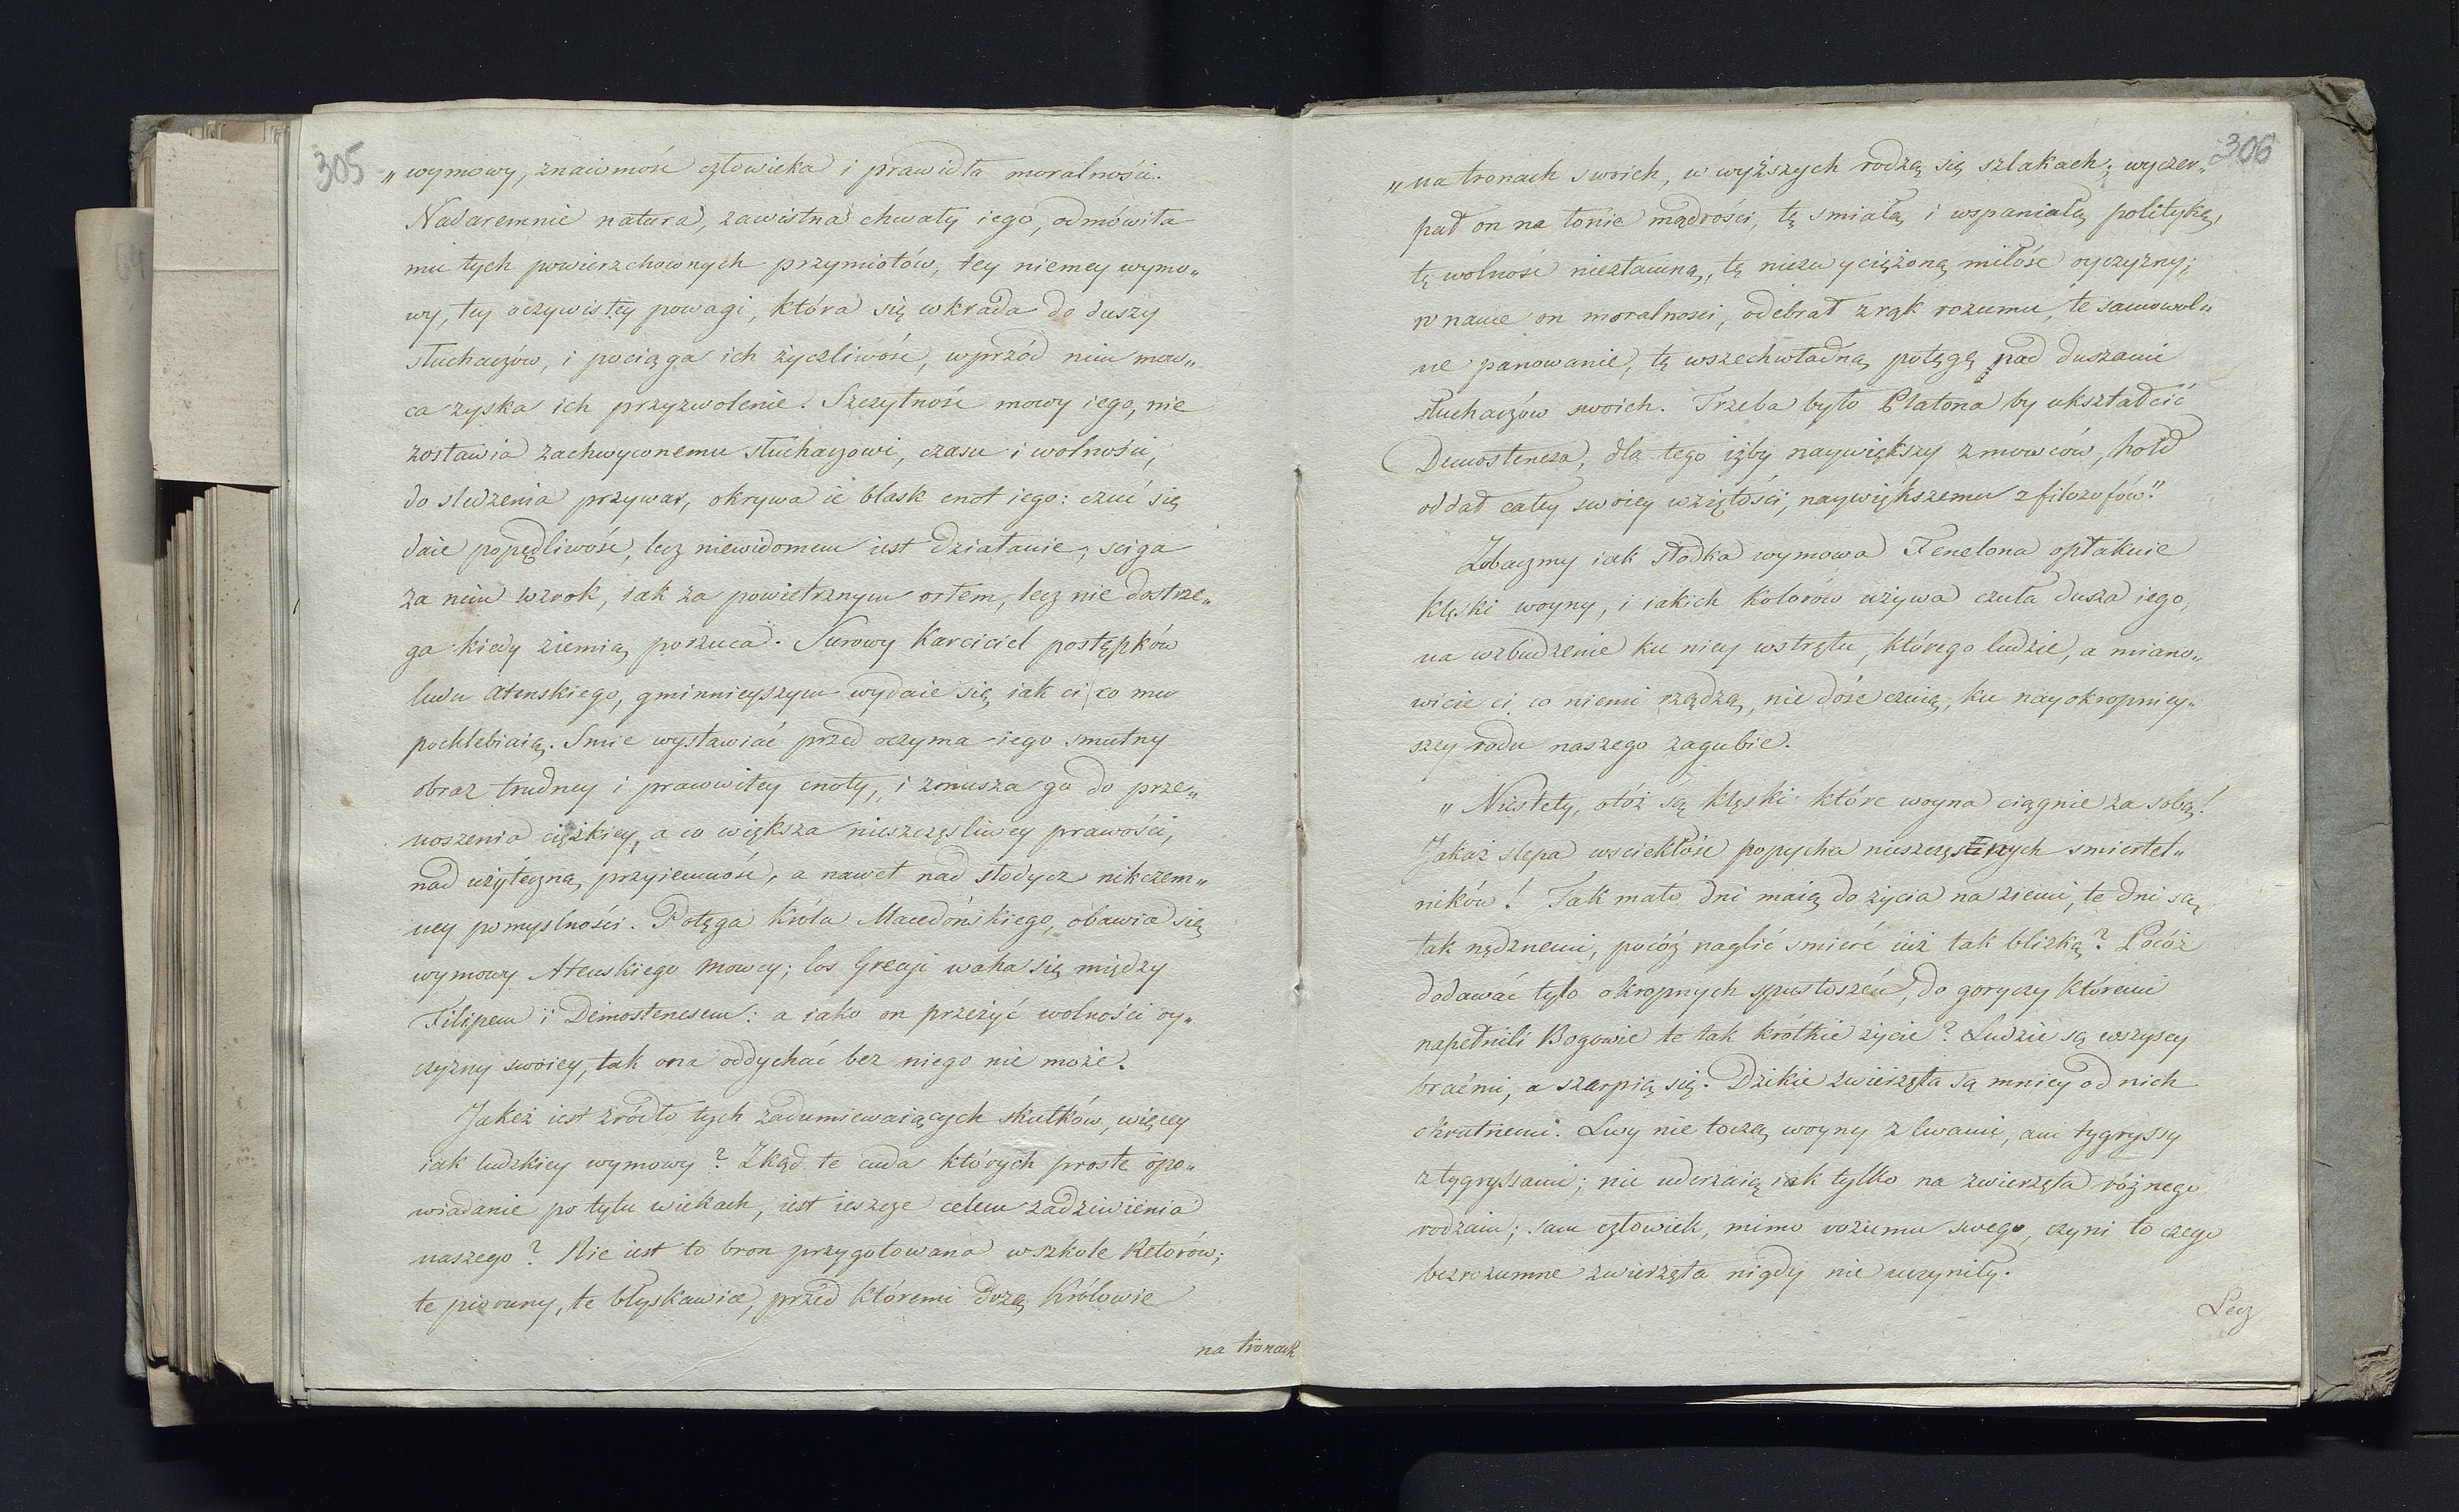 305
„wymowy, znaiomość człowieka i prawidła moralności.
Nadaremnie natura, zawistna chwały iego, odmówiła
mu tych powierzchownych przymiotów, tey niemey wymo„
wy, tey oczywistey powagi, która się wkrada do duszy
słuchaczów, i pociąga ich życzliwość, wprzód nim mow„
ca zyska ich przyzwolenie. Szczytność mowy iego, nie
zostawia zachwyconemu słuchaczowi, czasu i wolności,
do sledzenia przywar, okrywa ie blask cnot iego: czuć się
daie popędliwość, lecz niewidomem iest działanie; sciga
za nim wzrok, iak za powietrznym orłem, lecz nie dostrze„
ga kiedy ziemię porzuca. Surowy Karciciel postępków
ludu Atenskiego, gminnieyszym wydaie się iak ci co mu
pochlebiaią. Smie wystawiać przed oczyma iego smutny
obraz trudney i prawowitey cnoty, i zmusza go do prze„
noszenia ciężkiey, a co większa nieszczęsliwey prawości,
nad użyteczną przyiemność, a nawet nad słodycz nikczem„
ney pomyslności. Potęga Króla Macedońskiego, obawia się
wymowy Atenskiego mowcy; los Grecyi waha się między
Filipem i Demostenesem: a iako on przeżyć wolności oy„
czyzny swoiey, tak ona oddychać bez niego nie może.
Jakeż iest źródło tych zadumiewaiących skutków, więcey
iak ludzkiey wymowy? Zkąd te cuda których proste opo„
wiadanie po tylu wiekach, iest ieszcze celem zadziwienia
naszego? Nie iest to bron przygotowana w szkole Retorów;
te pioruny, te błyskawice, przed któremi drzą Królowie
na tronach
306
„na tronach swoich, w wyższych rodzą się szlakach; wyczer„
pał on na łonie mądrości, tę smiałą i wspaniałą politykę,
tę wolność niezłamną, tę niezwyciężoną miłość oyczyzny;
w nauce on moralności, odebrał z rąk rozumu, te samowol„
ne panowanie, tę wszechwładną potęgę nad duszami
słuchaczów swoich. Trzeba było Platona by ukształcić
Demosteneza, dla tego iżby naywiększy z mowców, hołd
oddał całey swoiey wziętości, naywiększemu z filozofów."
Zobaczmy iak słodka wymowa Fenelona opłakuie
klęski woyny, i iakich kolorów używa czuła dusza iego,
na wzbudzenie ku niey wstrętu, którego ludzie, a miano„
wicie ci co niemi rządzą, nie dość czuią, ku nayokropniey„
szey rodu naszego zagubie.
„Niestety, otóż są klęski które woyna ciągnie za sobą!
Jakaż slepa wsciekłość popycha nieszczęsnych smiertel„
ników! Tak mało dni maią do życia na ziemi, te dni są
tak nędznemi, pocóż naglić smierć iuż tak blizką? Pocóż
dodawać tyło okropnych spustoszeń, do goryczy któremi
napełnili Bogowie te tak krótkie życie? Ludzie są wszyscy
braćmi, a szarpią się. Dzikie zwierzęta są mniey od nich
okrutnemi. Lwy nie toczą woyny z lwami, ani tygryssy
z tygryssami; nie uderzaią iak tylko na zwierzęta różnego
rodzaiu; sam człowiek, mimo rozumu swego, czyni to czego
bezrozumne zwierzęta nigdy nie uczyniły.
Lecz